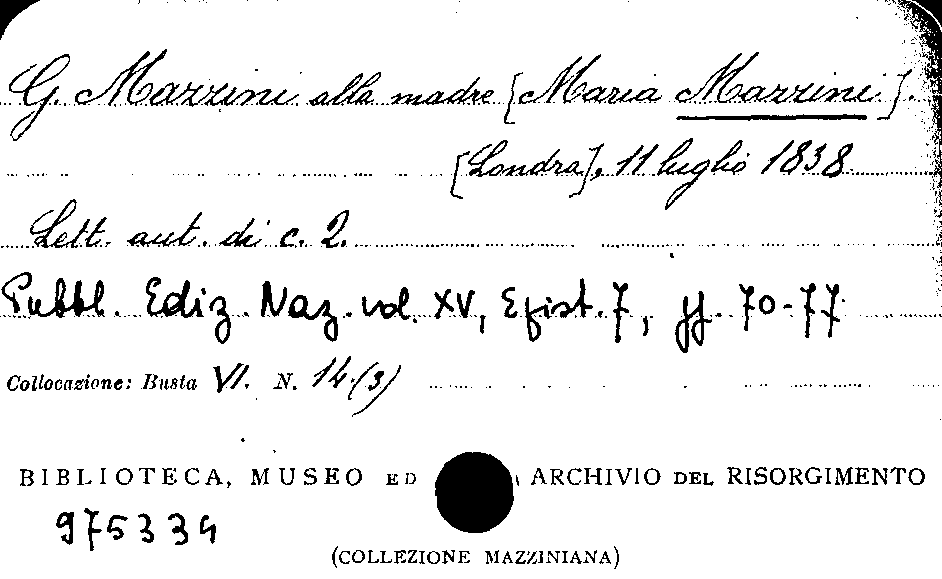 G. Mazzini alla madre [Maria Mazzini].
[Londra], 11 luglio 1838
Lett. aut. di c. 2.
Pubbl. Ediz. Naz. vol. XV, Epist. 7, pp. 70-77
Collocazione: Busta VI. N. 14.(3)
BIBLIOTECA, MUSEO ED ARCHIVIO DEL RISORGIMENTO
975334
(COLLEZIONE MAZZINIANA)